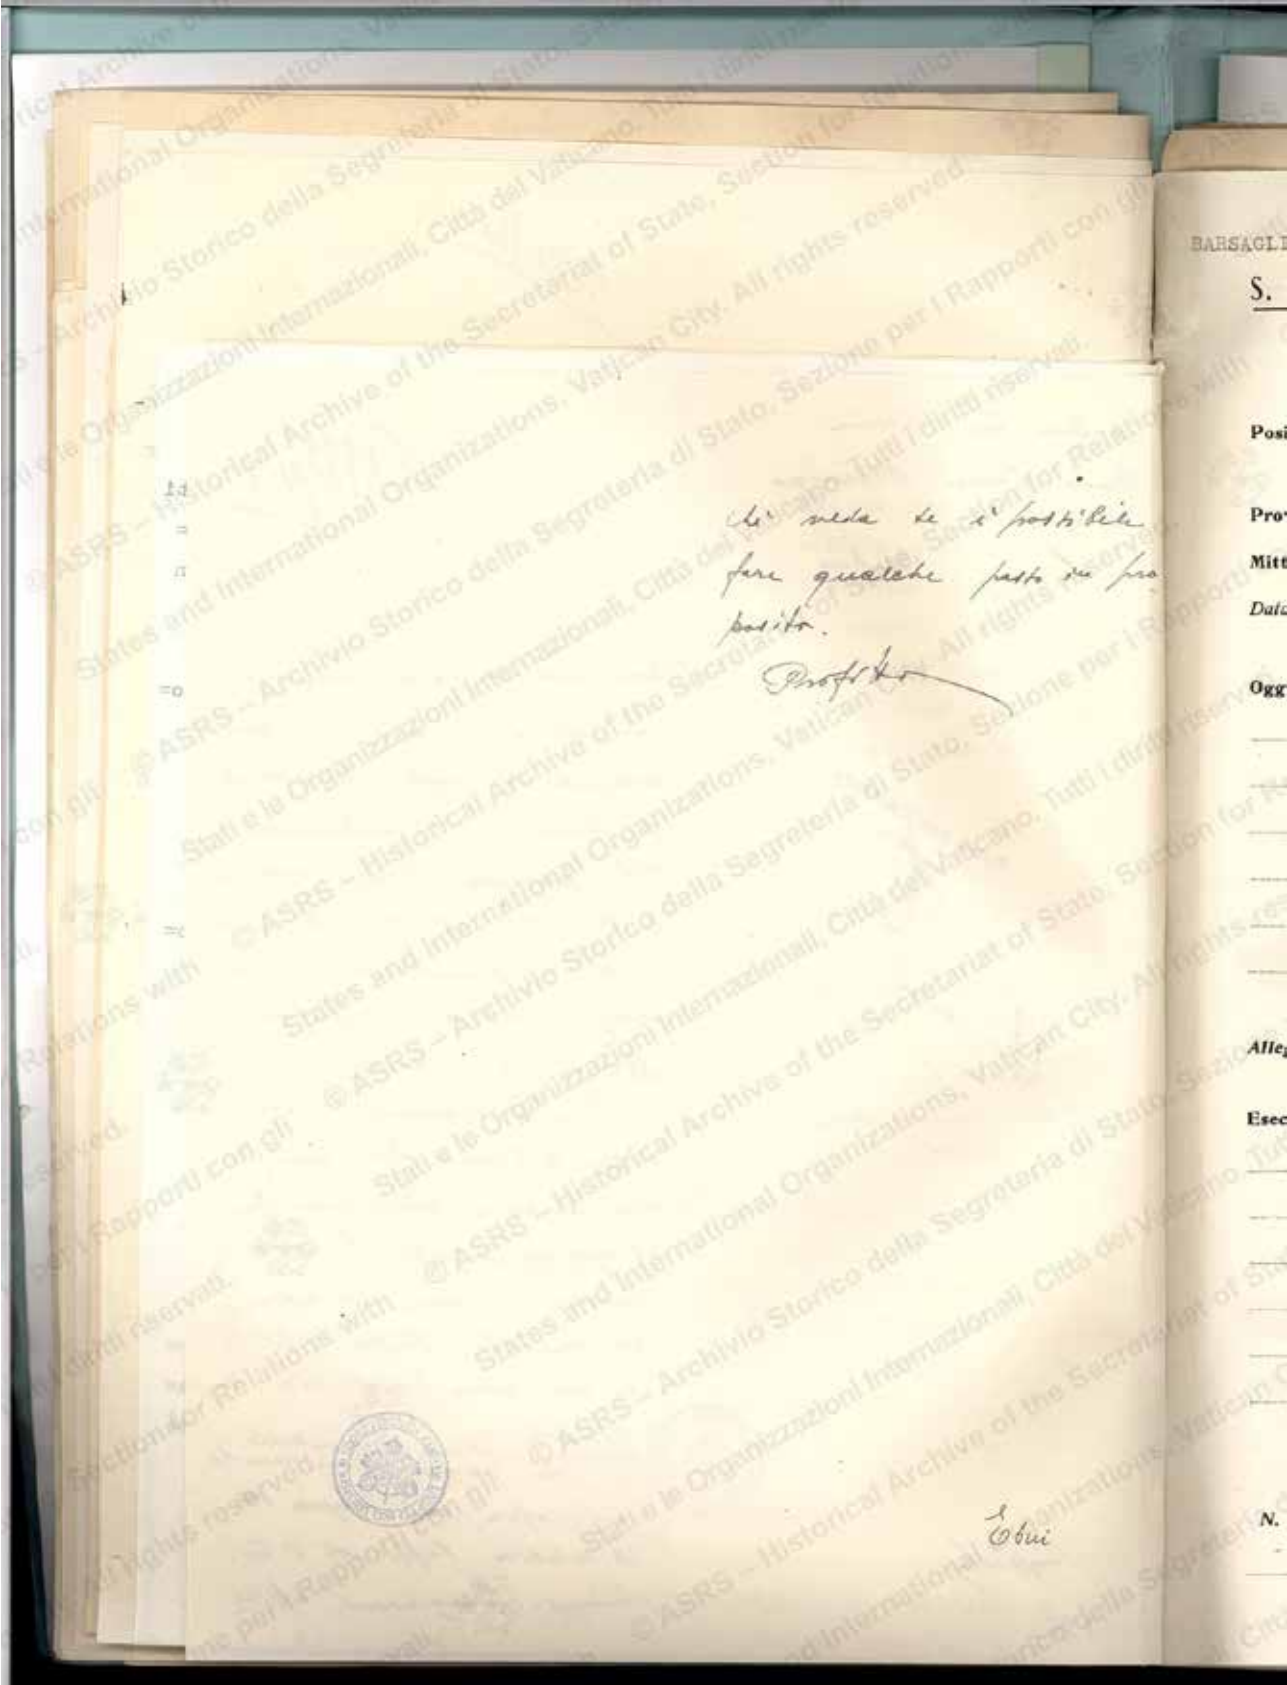 Si veda se è possibile
fare qualche passo in pro
posito.
Profitto
Ebrei
BARSAGLI
S.
Posi
Pro
Mitt
Data
Ogg
Alleg
Esec
N.
© ASRS – Archivio Storico della Segreteria di Stato, Sezione per i Rapporti con gli
Stati e le Organizzazioni Internazionali, Città del Vaticano. Tutti i diritti riservati.
© ASRS – Historical Archive of the Secretariat of State, Section for Relations with
States and International Organizations, Vatican City. All rights reserved.